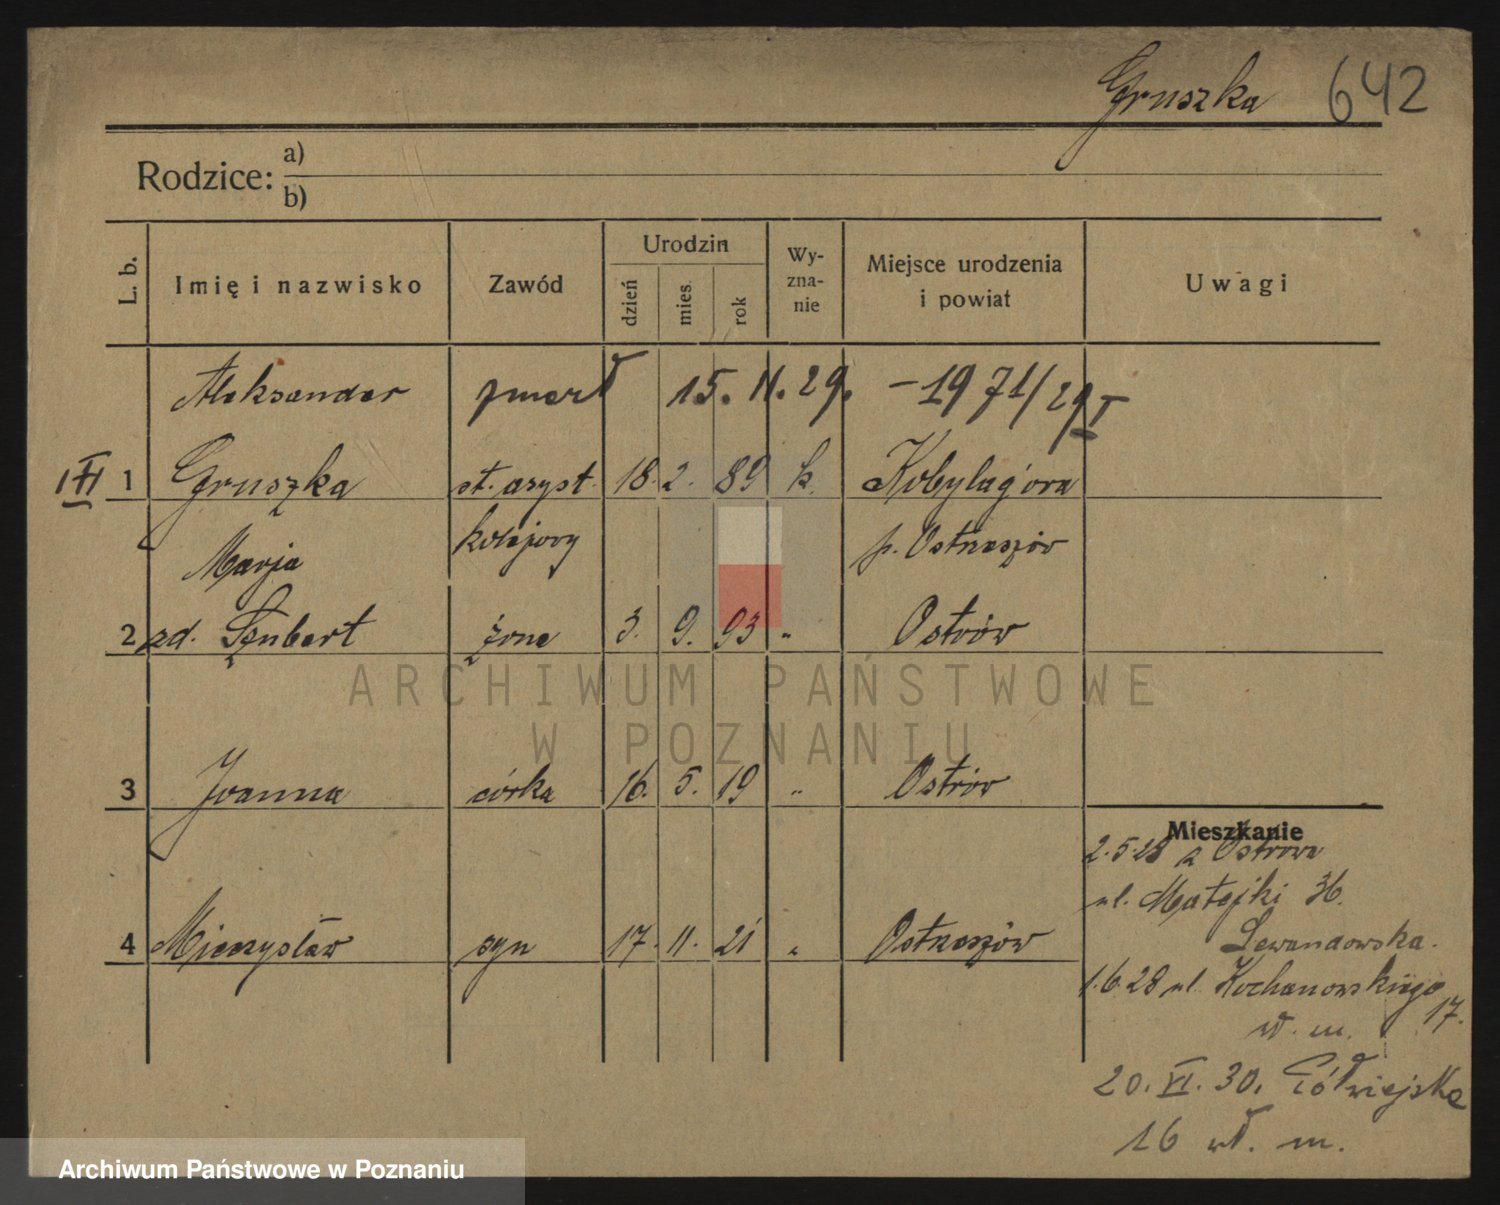 Gruszka 642
Rodzice: a)
b)
L. b. Imię i nazwisko Zawód Urodzin dzień mies. rok Wy-zna-nie Miejsce urodzenia i powiat Uwagi
Aleksander zmarł 15. 11. 29. - 1971/29 I
1 Gruszka st. asyst. 18. 2. 89 k. Kobylagóra
Marja kolejowy p. Ostrzeszów
2 zd. Szubert żona 3. 9. 93 " Ostrów
3 Joanna córka 16. 5. 19 " Ostrów
4 Mieczysław syn 17. 11. 21 " Ostrzeszów
Mieszkanie
2.5.28 z Ostrowa
ul. Matejki 36.
Lewandowska.
1.6.28 ul. Kochanowskiego 17.
wł. m.
20. VI. 30. Półwiejska
16 wł. m.
ARCHIWUM PAŃSTWOWE
W POZNANIU
Archiwum Państwowe w Poznaniu